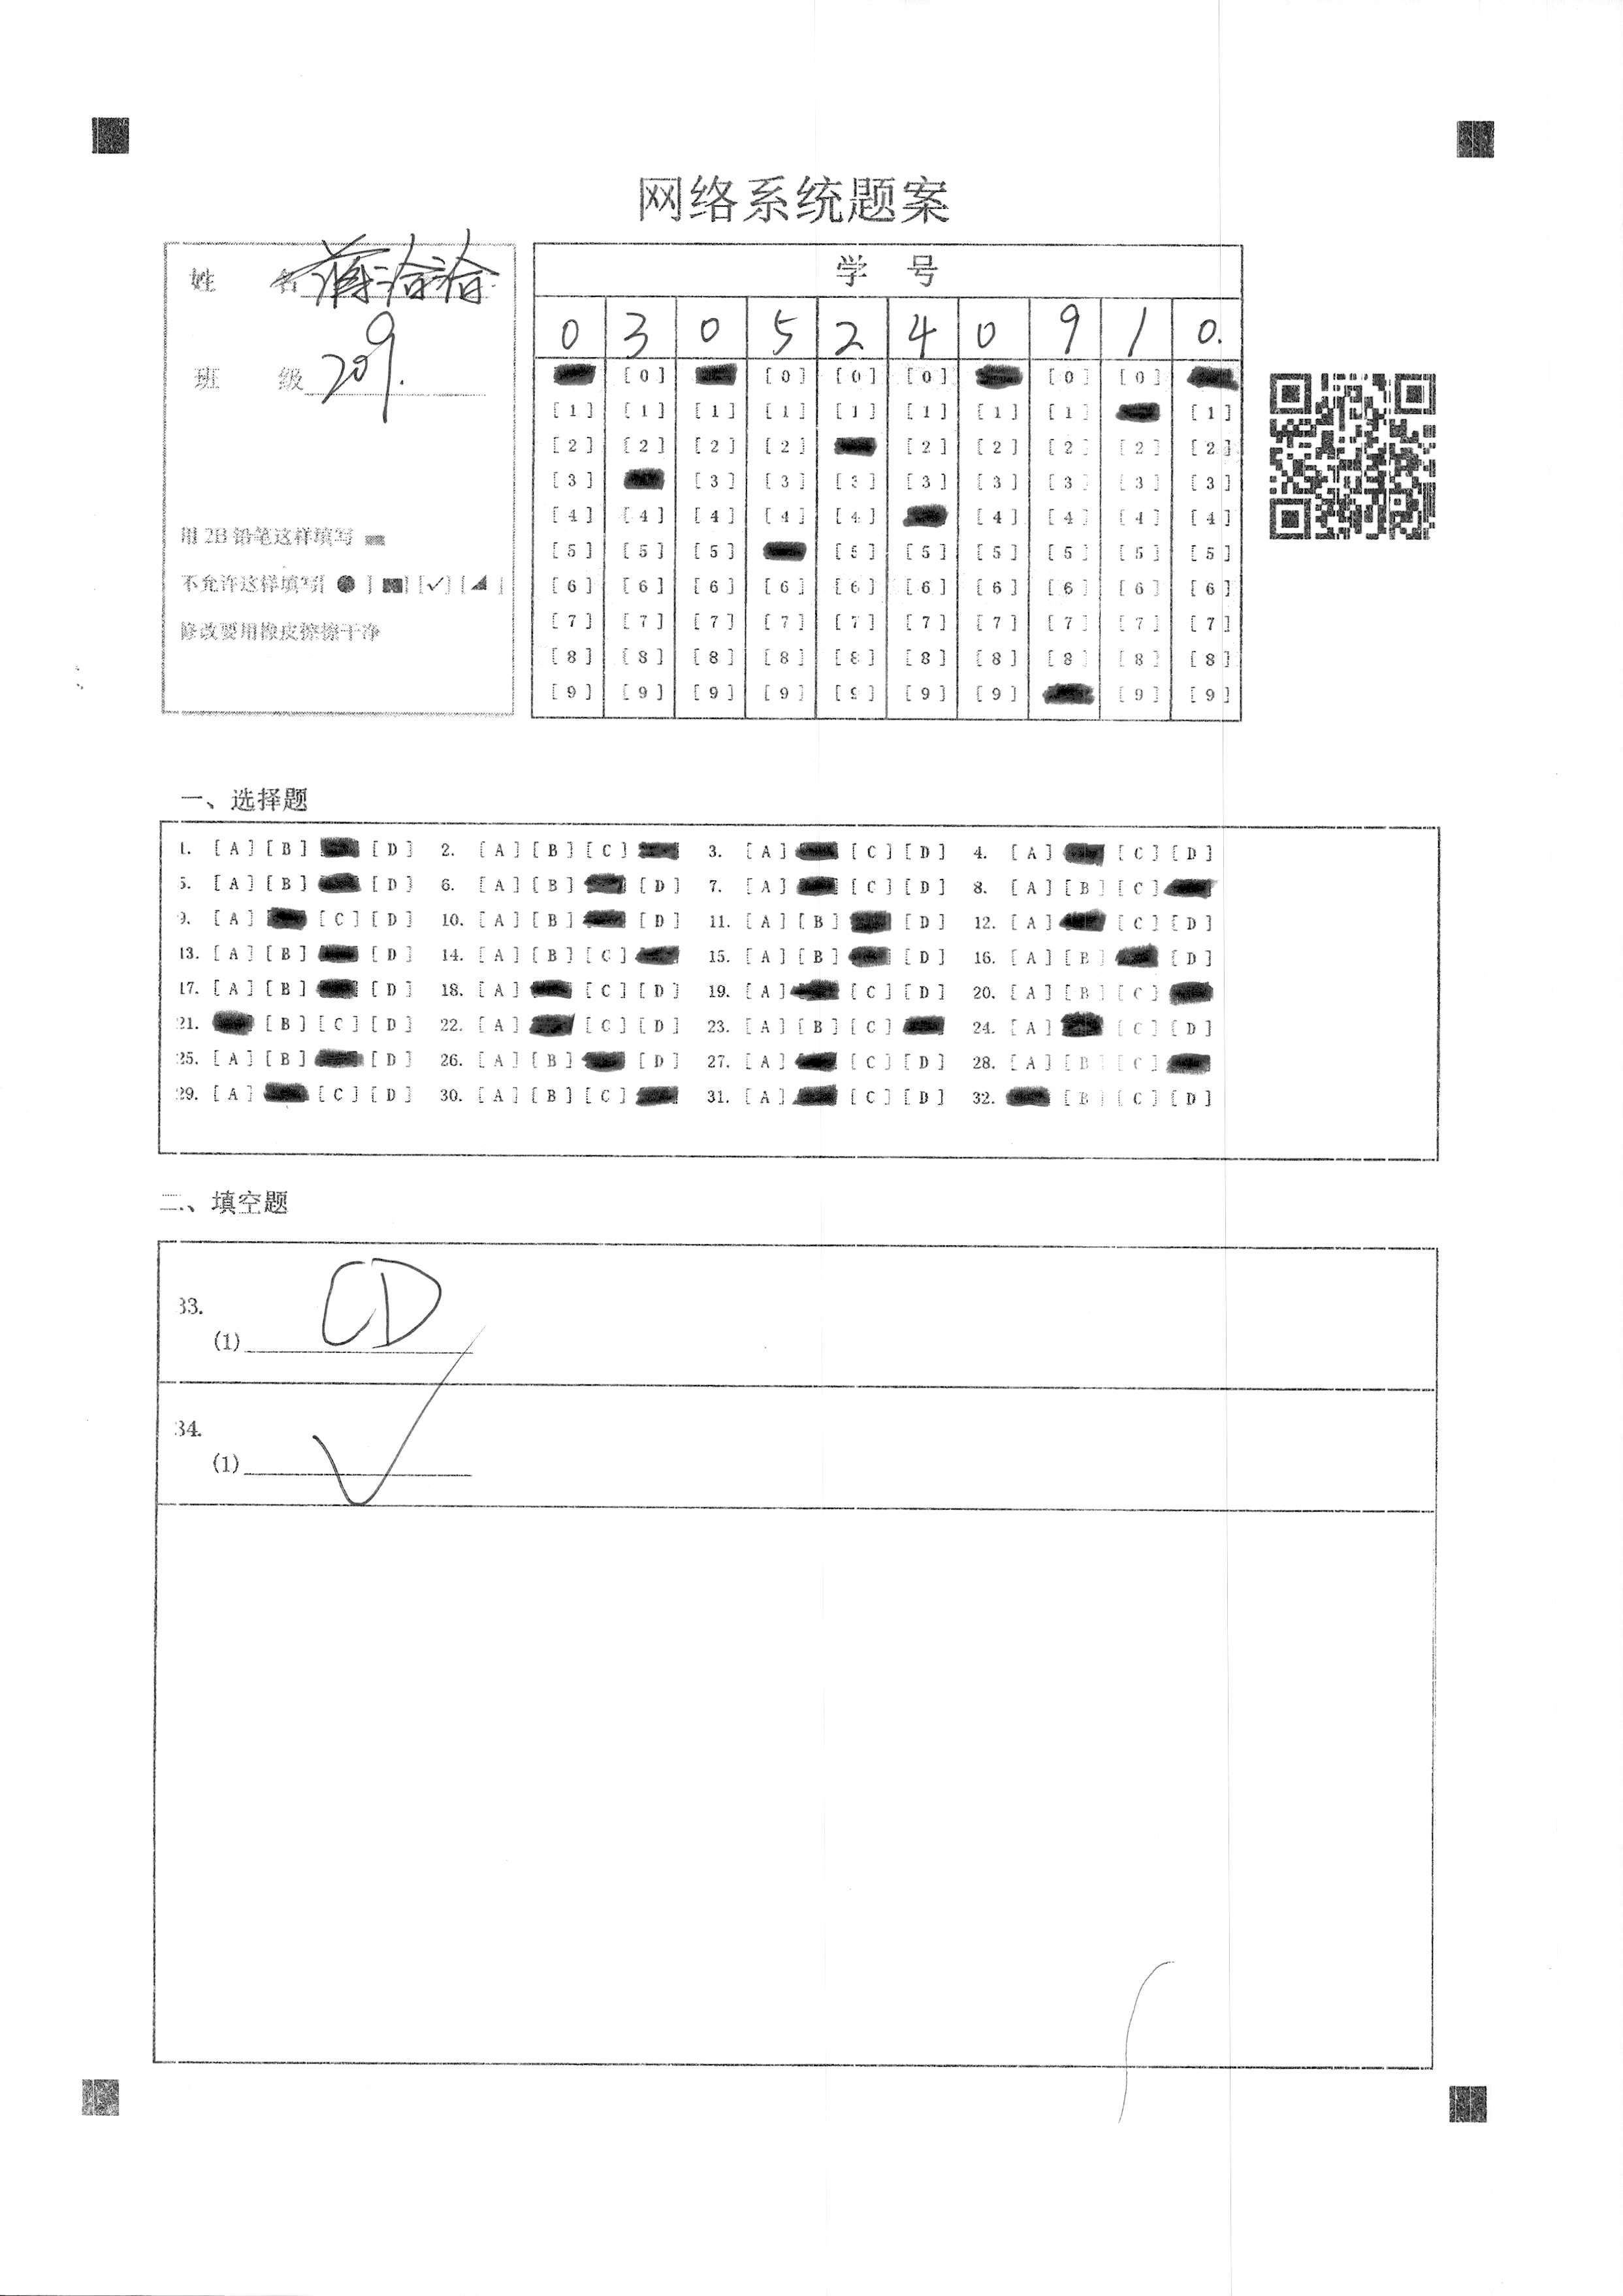 网络系统题案
姓 名 蒋洽洽
班 级 209.
用 2B 铅笔这样填写
不允许这样填写[●] [■] [✓] [◢]
修改要用橡皮擦擦干净
学 号
0 3 0 5 2 4 0 9 1 0.
[0] [0] [0] [0] [0] [0]
[1] [1] [1] [1] [1] [1] [1] [1] [1]
[2] [2] [2] [2] [2] [2] [2] [2] [2]
[3] [3] [3] [3] [3] [3] [3] [3] [3]
[4] [4] [4] [4] [4] [4] [4] [4] [4]
[5] [5] [5] [5] [5] [5] [5] [5] [5]
[6] [6] [6] [6] [6] [6] [6] [6] [6] [6]
[7] [7] [7] [7] [7] [7] [7] [7] [7] [7]
[8] [8] [8] [8] [8] [8] [8] [8] [8] [8]
[9] [9] [9] [9] [9] [9] [9] [9] [9]
一、选择题
1. [A] [B] [D] 2. [A] [B] [C] 3. [A] [C] [D] 4. [A] [C] [D]
5. [A] [B] [D] 6. [A] [B] [D] 7. [A] [C] [D] 8. [A] [B] [C]
9. [A] [C] [D] 10. [A] [B] [D] 11. [A] [B] [D] 12. [A] [C] [D]
13. [A] [B] [D] 14. [A] [B] [C] 15. [A] [B] [D] 16. [A] [B] [D]
17. [A] [B] [D] 18. [A] [C] [D] 19. [A] [C] [D] 20. [A] [B] [C]
21. [B] [C] [D] 22. [A] [C] [D] 23. [A] [B] [C] 24. [A] [C] [D]
25. [A] [B] [D] 26. [A] [B] [D] 27. [A] [C] [D] 28. [A] [B] [C]
29. [A] [C] [D] 30. [A] [B] [C] 31. [A] [C] [D] 32. [B] [C] [D]
二、填空题
33.
(1) CD
34.
(1) ✓